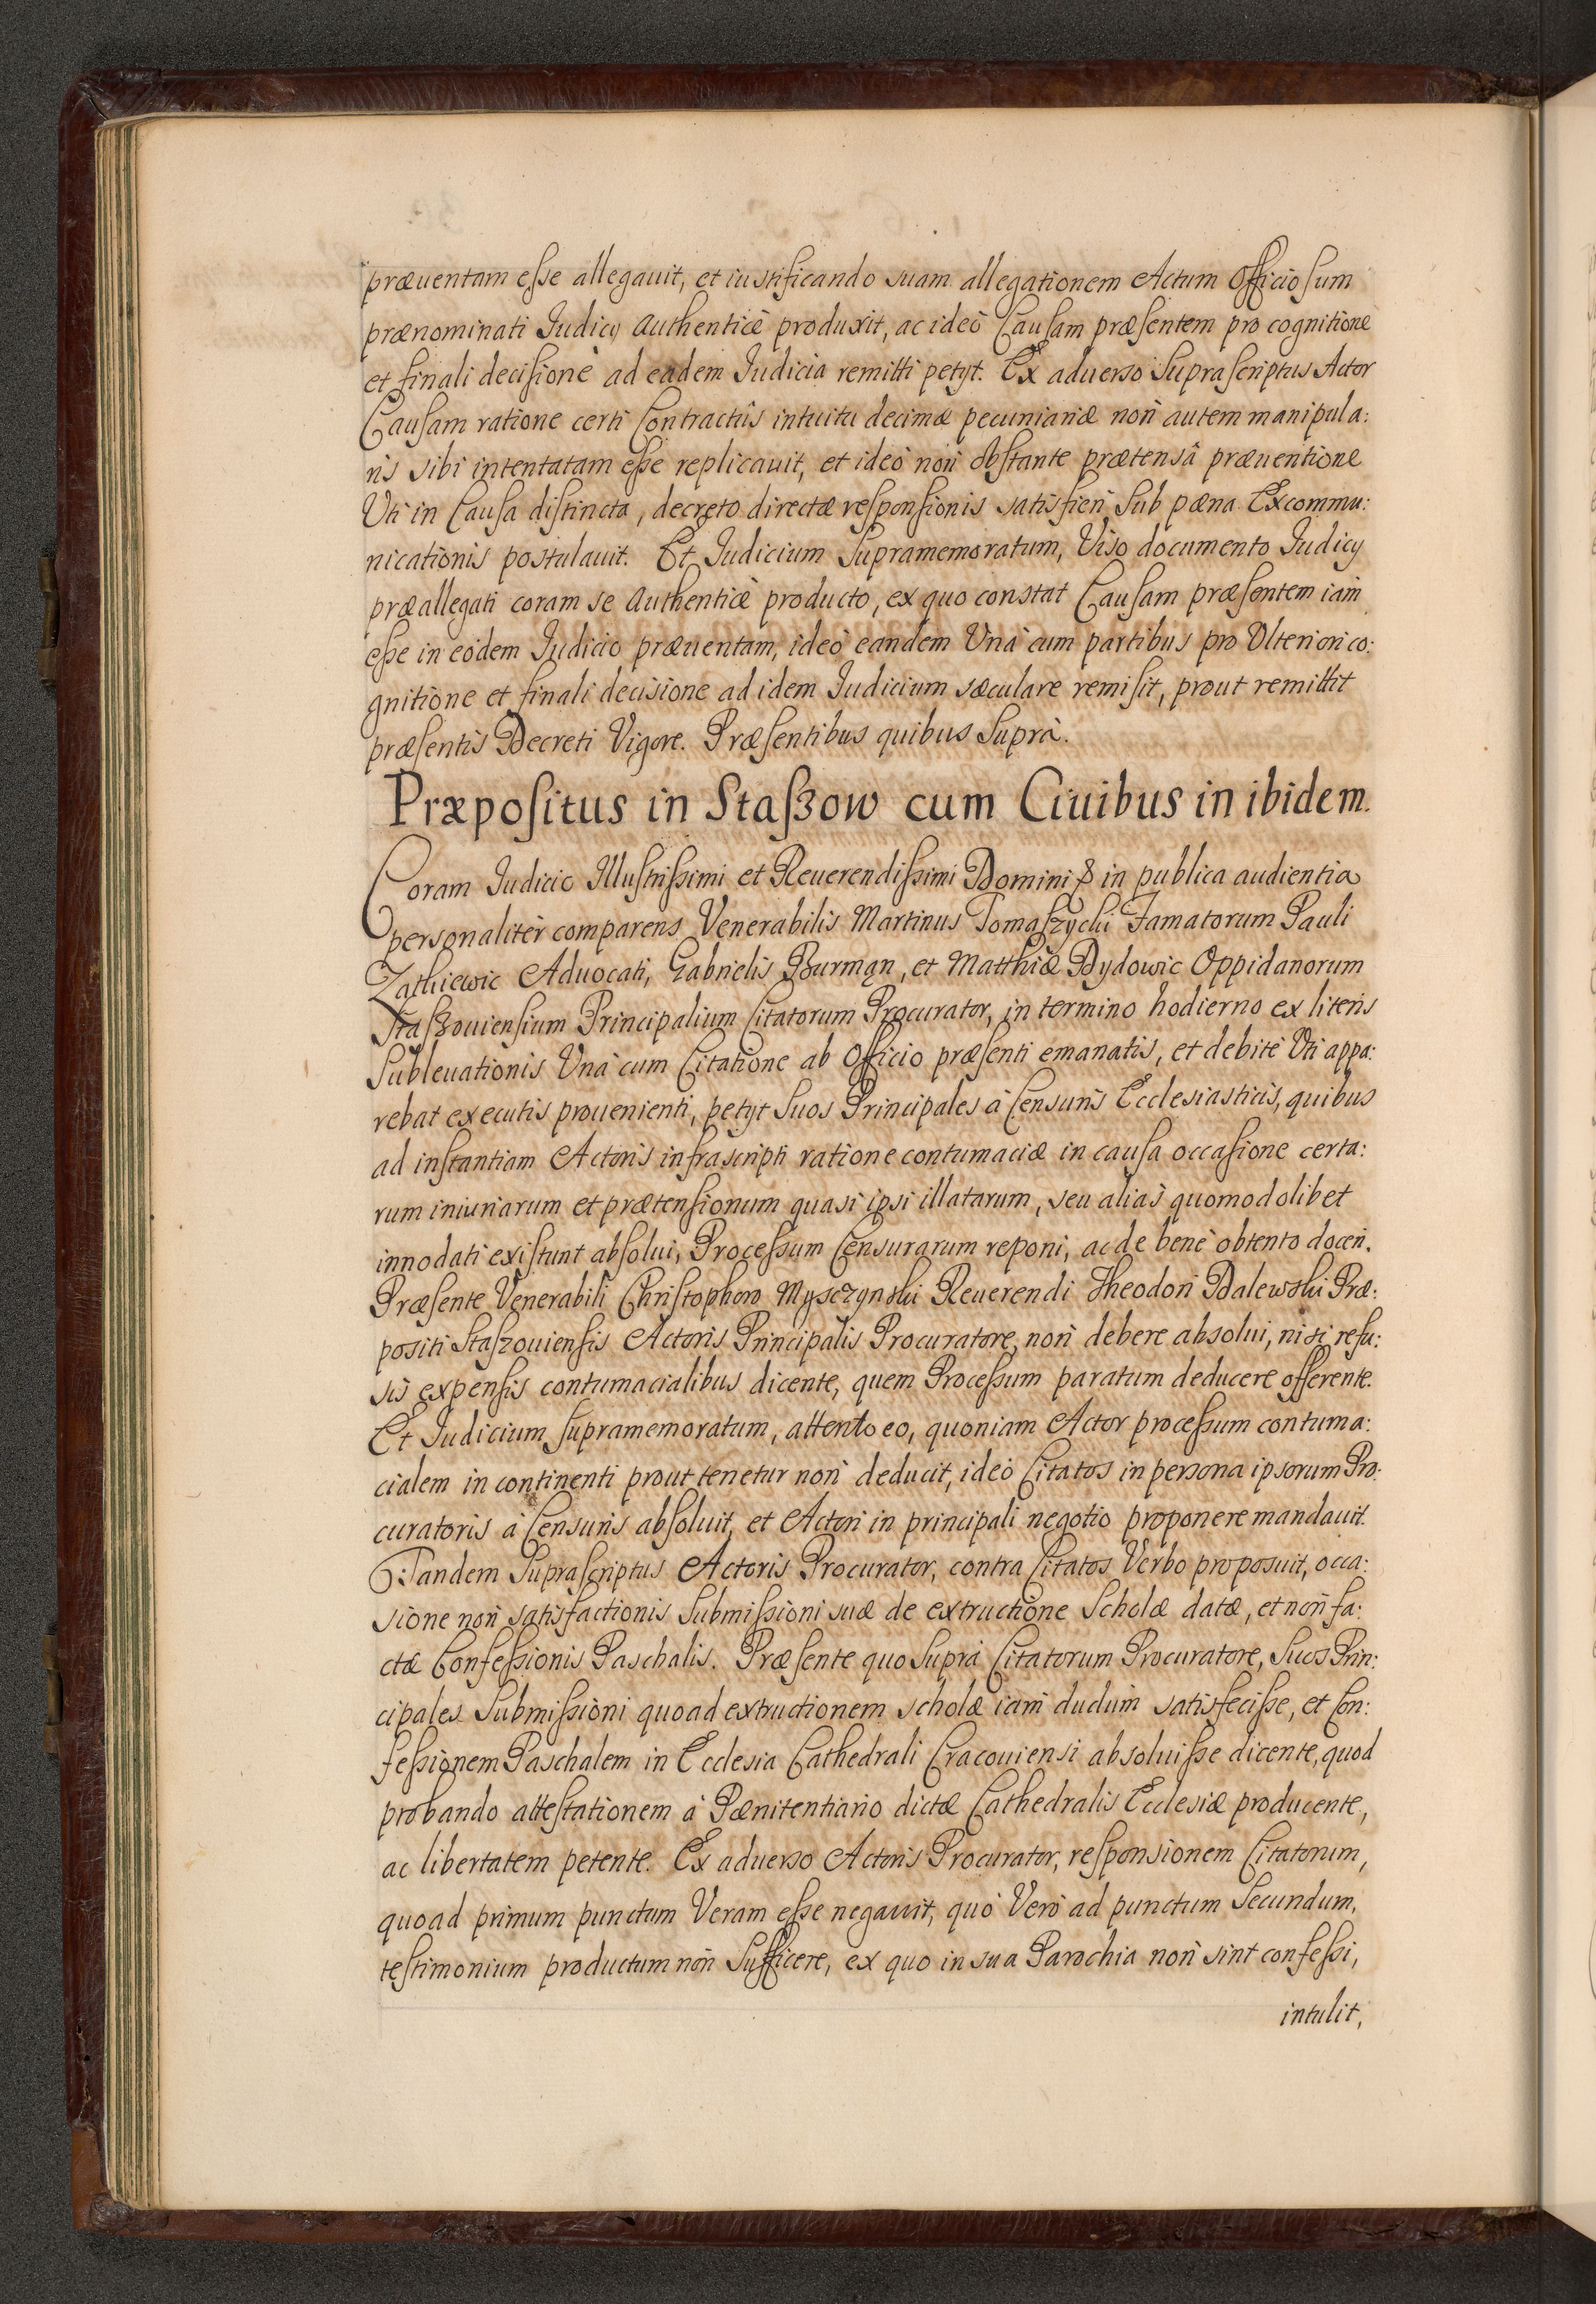 præuentam eſse allegauit, et iustificando suam allegationem Actum Officioſum
prænominati Iudicij Authenticè produxit, ac ideò Cauſam præſentem pro cognitione
et finali deciſione ad eadem Iudicia remitti petijt. Ex aduerso Supraſcriptus Actor
Cauſam ratione certi Contractûs intuitu decimæ pecuniariæ non autem manipula:
ris sibi intentatam eſse replicauit, et ideò non obſtante prætensâ præuentione
Vti in Cauſa diſtincta, decreto directæ reſponſionis satisfieri Sub pæna Excommu:
nicationis postulauit. Et Iudicium Supramemoratum, Viso documento Iudicij
præallegati coram se Authenticè producto, ex quo constat Cauſam præſentem iam
eſse in eodem Iudicio præuentam, ideò eandem Vnà cum partibus pro Vlteriori co:
gnitione et finali decisione ad idem Iudicium sæculare remiſit, prout remittit
præſentis Decreti Vigore. Præſentibus quibus Suprà.
Præpoſitus in Staſzow cum Ciuibus in ibidem.
Coram Iudicio Illuſtriſsimi et Reuerendiſsimi Domini & in publica audientia
personalitèr comparens Venerabilis Martinus Tomaſzycki Famatorum Pauli
Zathiewic Aduocati, Gabrielis Burmąn, et Matthiæ Dydowic Oppidanorum
Staſzouienſium Principalium Citatorum Procurator, in termino hodierno ex literis
Subleuationis Vnà cum Citatione ab Officio præſenti emanatis, et debitè Vti appa:
rebat executis prouenienti, petijt Suos Principales à Censuris Eccleſiasticis, quibus
ad inſtantiam Actoris infrascripti ratione contumaciæ in cauſa occaſione certa:
rum iniuriarum et prætenſionum quasi ipsi illatarum, seu aliàs quomodolibet
innodati exiſtunt abſolui, Proceſsum Cenſurarum reponi, ac de benè obtento doceri.
Præſente Venerabili Chriſtophoro Mysczynski Reuerendi Theodori Dalewski Præ:
positi Staſzouienſis Actoris Principalis Procuratore, non debere abſolui, nisi refu:
sis expenſis contumacialibus dicente, quem Proceſsum paratum deducere offerente.
Et Iudicium ſupramemoratum, attento eo, quoniam Actor proceſsum contuma:
cialem in continenti prout tenetur non deducit, ideò Citatos in persona ipsorum Pro:
curatoris à Censuris abſoluit, et Actori in principali negotio proponere mandauit.
Tandem Supraſcriptus Actoris Procurator, contra Citatos Verbo proposuit, occa:
sione non satisfactionis Submiſsioni suæ de extructione Scholæ datæ, et non fa:
ctæ Confeſsionis Paschalis. Præſente quo Suprà Citatorum Procuratore, Suos Prin:
cipales Submiſsioni quoad extructionem scholæ iam dudum satisfeciſse, et Con:
feſsionem Paschalem in Eccleſia Cathedrali Cracouiensi abſoluiſse dicente, quod
probando atteſtationem à Pænitentiario dictæ Cathedralis Eccleſiæ producente,
ac libertatem petente. Ex aduerso Actoris Procurator, reſponsionem Citatorum,
quoad primum punctum Veram eſse negauit, quò Verò ad punctum Secundum,
teſtimonium productum non Sufficere, ex quo in sua Parochia non sint confeſsi,
intulit,